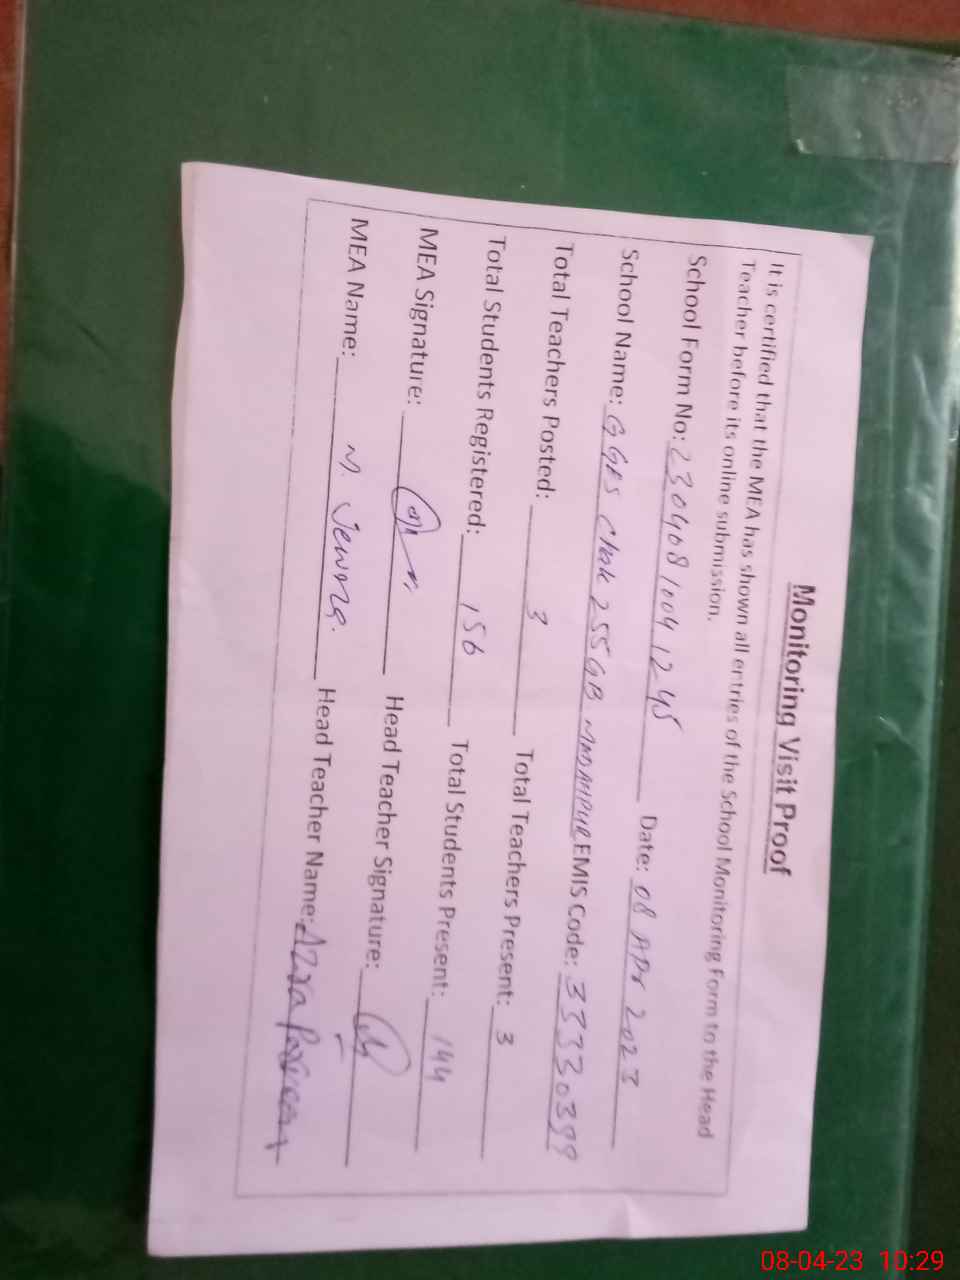 Monitoring Visit Proof
It is certified that the MEA has shown all entries of the School Monitoring Form to the Head
Teacher before its online submission.
School Form No: 2304081004 1245 Date: 08 APr 2023
School Name: GGPS Chak 255GB EMIS Code: 33330399
Total Teachers Posted: 3 Total Teachers Present: 3
Total Students Registered: 156 Total Students Present: 144
MEA Signature: Head Teacher Signature:
MEA Name: M. Head Teacher Name: Azra
08-04-23 10:29